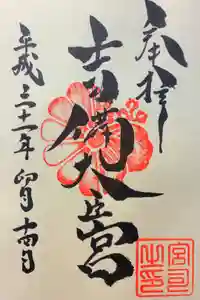 奉拝
吉備大臣宮
平成三十一年卯月十四日
宮司之印